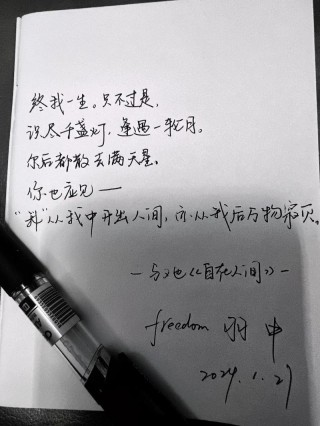 终我一生。只不过是,
识尽千盏灯,逢遇一轮月。
尔后都散去满天星。
你也应见——
"我"从我中开出人间,亦从我后与物寂灭。
—与她《自在人间》—
freedom 羽中
2024.1.27